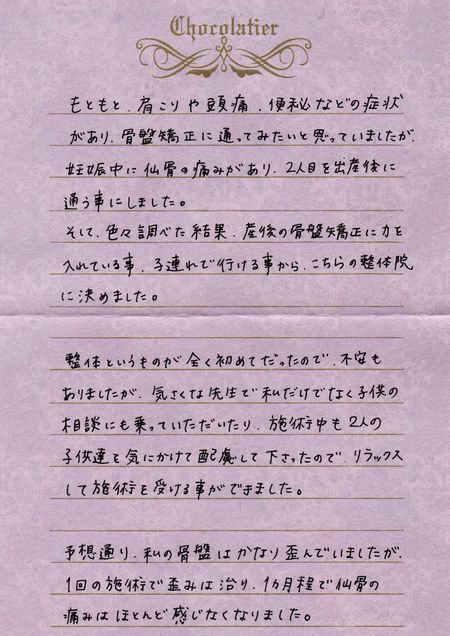 Chocolatier
もともと、肩こりや頭痛、便秘などの症状
があり、骨盤矯正に通ってみたいと思っていましたが、
妊娠中に仙骨の痛みがあり、2人目を出産後に
通う事にしました。
そして、色々調べた結果、産後の骨盤矯正に力を
入れている事、子連れで行ける事から、こちらの整体院
に決めました。
整体というものが全く初めてだったので、不安も
ありましたが、気さくな先生で私だけでなく子供の
相談にも乗っていただいたり、施術中も2人の
子供達を気にかけて配慮して下さったので、リラックス
して施術を受ける事ができました。
予想通り、私の骨盤はかなり歪んでいましたが、
1回の施術で歪みは治り、1カ月程で仙骨の
痛みはほとんど感じなくなりました。